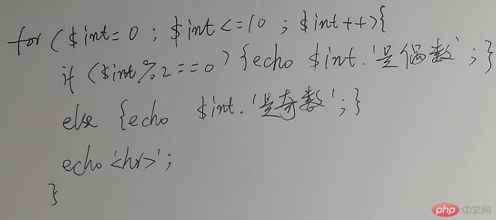 for ($int=0 ; $int<=10 ; $int++){
if ($int%2==0) {echo $int.'是偶数';}
else {echo $int.'是奇数';}
echo'<hr>';
}
php 中文网